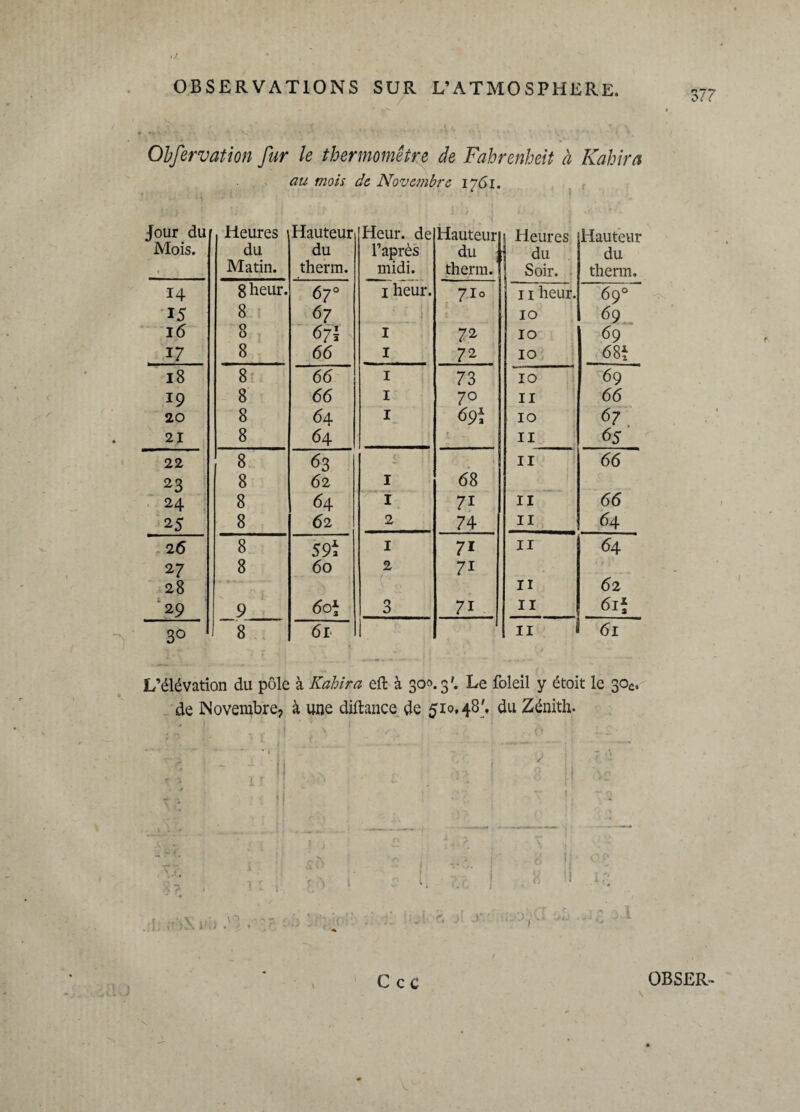 OBSERVATIONS SUR L'ATMOSPHERE. 377
Obſervation ſur le thermomêtre de Fahrenheit à Kahira
au mois de Novembre 1761.
Jour du Mois. | Heures du Matin. | Hauteur du therm. | Heur. de l'après midi. | Hauteur du therm. | Heures du Soir. | Hauteur du therm.
14 | 8 heur. | 67° | 1 heur. | 71° | 11 heur. | 69°
15 | 8 | 67 | | | 10 | 69
16 | 8 | 67½ | 1 | 72 | 10 | 69
17 | 8 | 66 | 1 | 72 | 10 | 68½
18 | 8 | 66 | 1 | 73 | 10 | 69
19 | 8 | 66 | 1 | 70 | 11 | 66
20 | 8 | 64 | 1 | 69½ | 10 | 67
21 | 8 | 64 | | | 11 | 65
22 | 8 | 63 | | | 11 | 66
23 | 8 | 62 | 1 | 68 | |
24 | 8 | 64 | 1 | 71 | 11 | 66
25 | 8 | 62 | 2 | 74 | 11 | 64
26 | 8 | 59½ | 1 | 71 | 11 | 64
27 | 8 | 60 | 2 | 71 | |
28 | | | | | 11 | 62
29 | 9 | 60½ | 3 | 71 | 11 | 61½
30 | 8 | 61 | | | 11 | 61
L'élévation du pôle à Kahira eſt à 30°. 3'. Le ſoleil y étoit le 30e.
de Novembre, à une diſtance de 51°. 48'. du Zénith.
C c c OBSER-